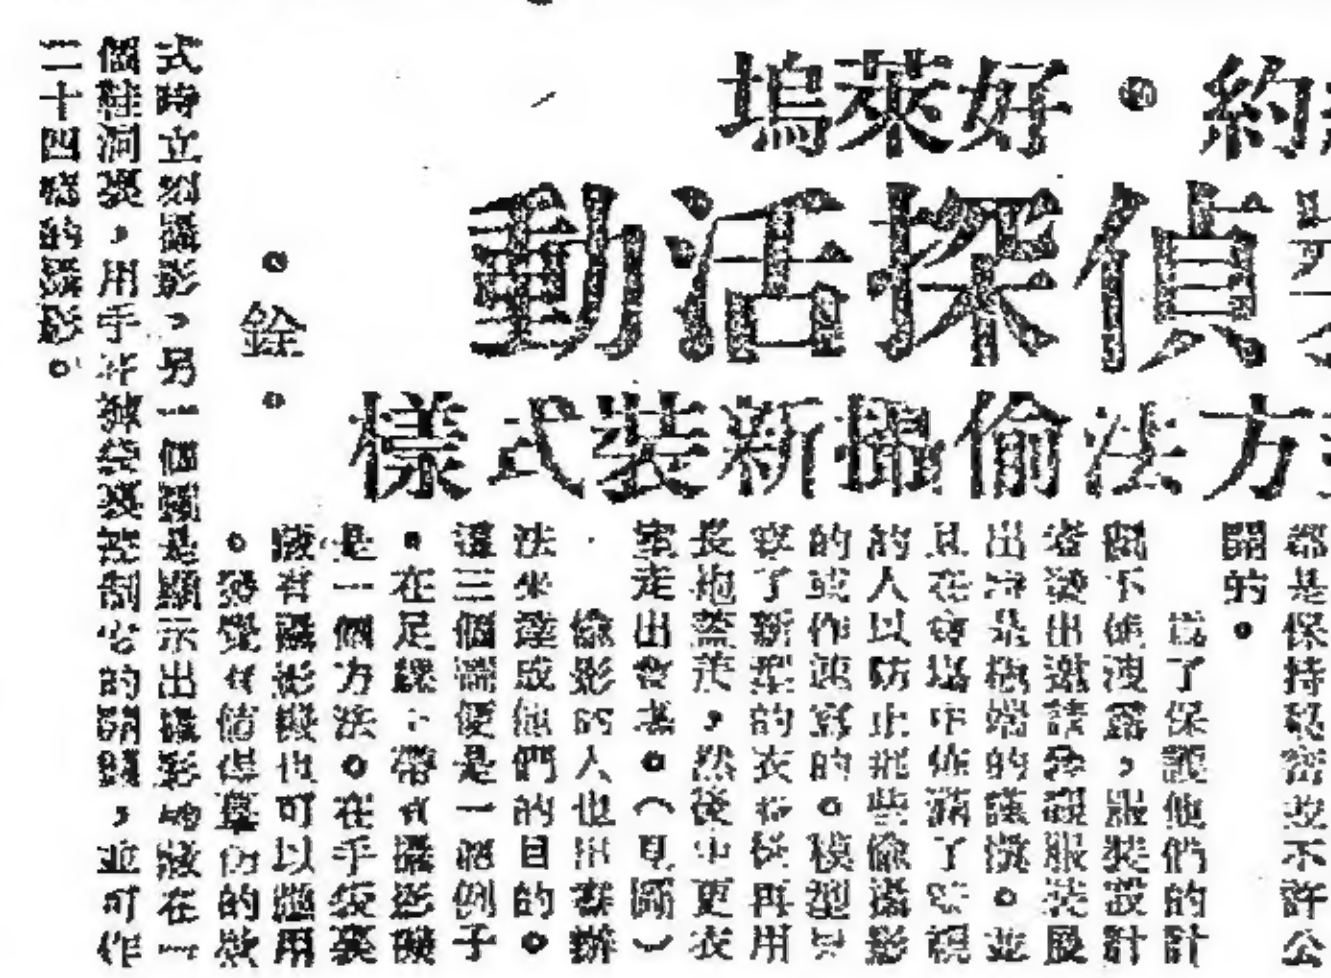 約・好萊塢
偵探活動
方法偷新裝式樣
都是保持秘密並不許公
開的。
為了保護他們的計
劃不使洩露，服裝設計
者發出邀請參觀服裝展
出是極端的謹慎。並
且在會場中佈滿了監視
的人以防止那些偷攝影
的或作速寫的。模型
穿了新型的衣後再用
長袍蓋，然後由更衣
室走出會場。（見圖）
偷影的人也用辦
法來達成他們的目的。
這三個圖便是一個例子
。在足踝上帶有攝影機
是一個方法。在手袋裏
藏有攝影機也可以應用
。發覺有值得摹仿的款
・銓・
式時立刻攝影，另一個圖是顯示出攝影機藏在一
個鞋洞裏，用手在袋裏控制它的開關，並可作
二十四張的攝影。